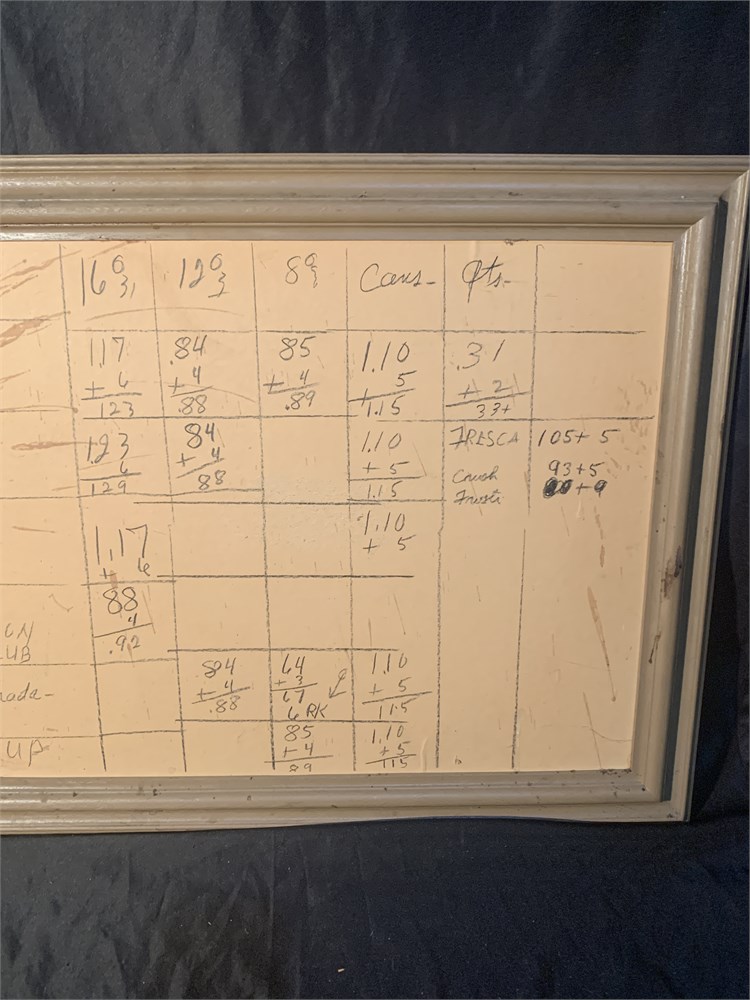 16 oz. 12 oz 8 oz Cans- Qts-
117 .84 85 1.10 .31
+ 6 + 4 + 4 5 + 2
123 .88 .89 1.15 33+
123 84 1.10 FRESCA 105+ 5
6 + 4 + 5 Crush 93+5
129 88 1.15 + 9
1.17 1.10
+ 6 + 5
88
4
.92
ON
LUB
nada- 84 64 1.10
+ 4 + 3 + 5
.88 67 115
6 PK
UP 85 1.10
+ 4 + 5
89 115